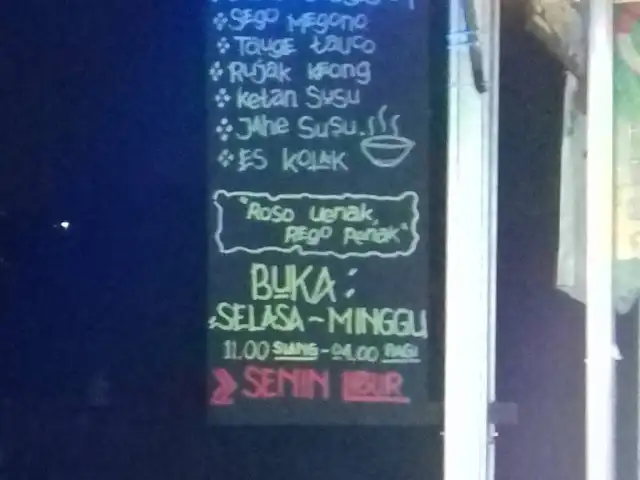 SEGO MEGONO
TAUGE tAUCO
RUJAK KEONG
KETAN SUSU
JAHE SUSU
ES KOLAK
"ROSO UENAK,
REGO PENAK"
BUKA :
SELASA ~ MINGGU
11.00 SIANG - 04.00 PAGI
SENIN LIBUR